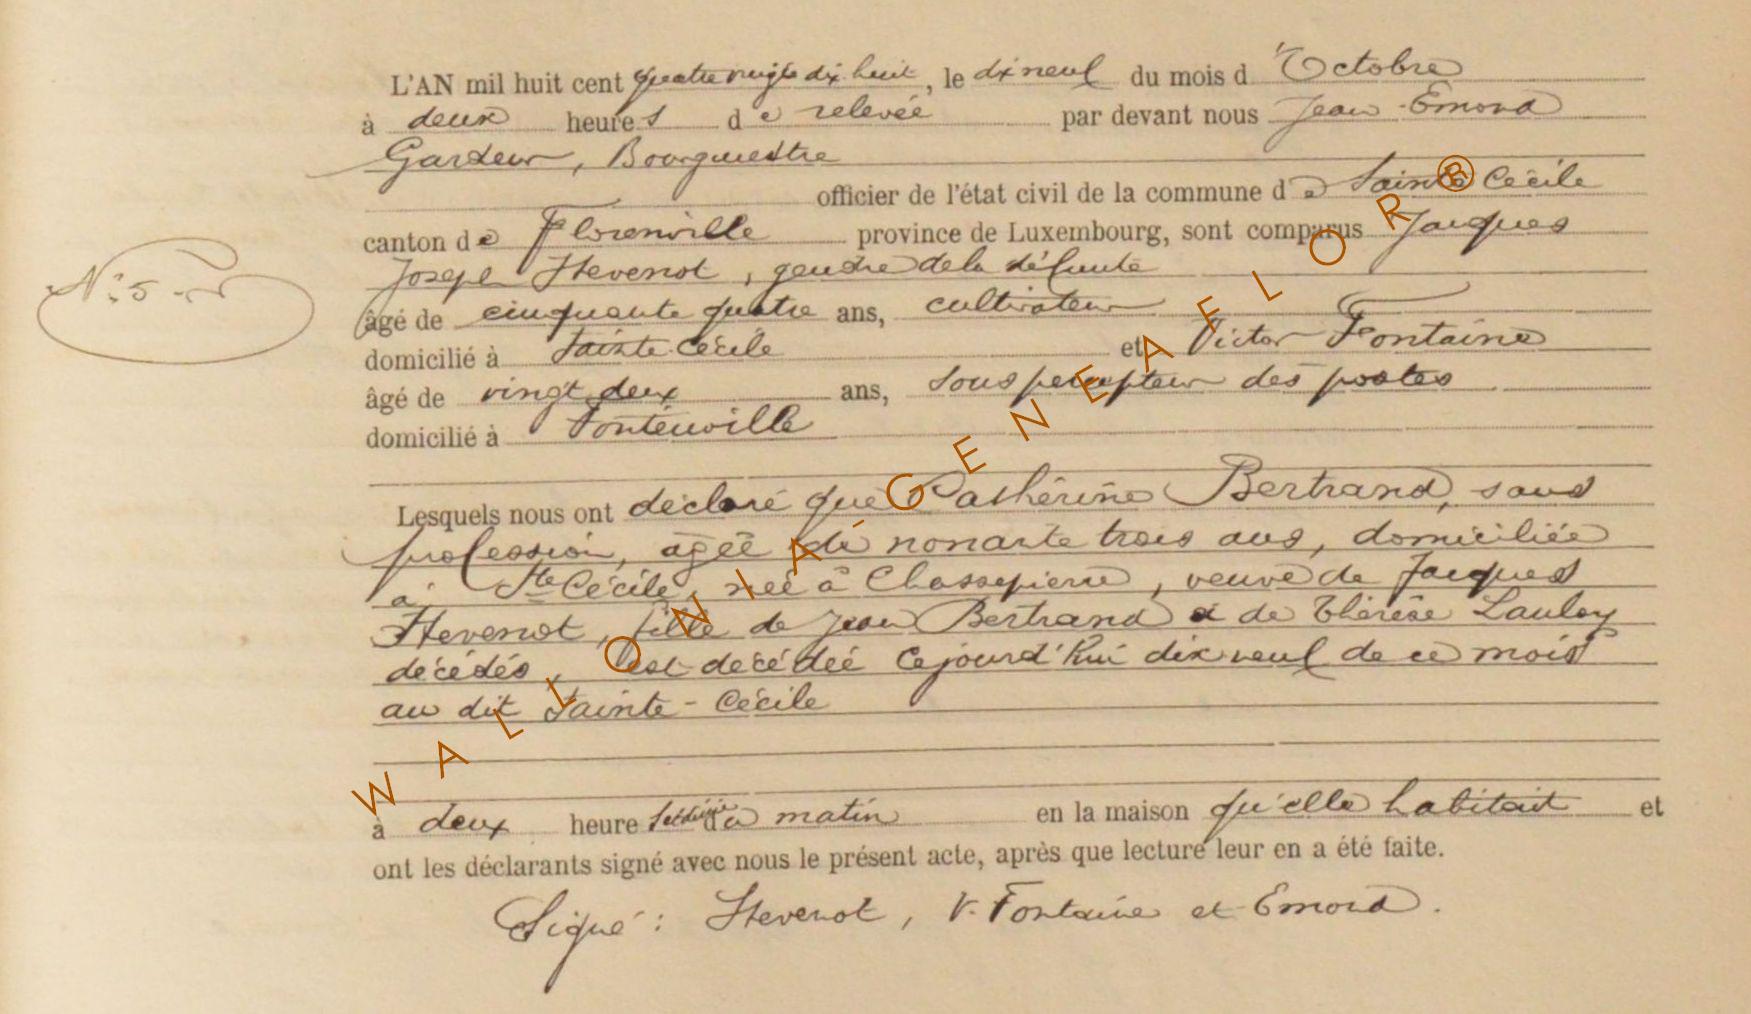 L'AN mil huit cent quatre vingts dix huit, le dix neuf du mois d'Octobre
à deux heures de relevée par devant nous Jean Emond
Gardeur, Bourgmestre
officier de l'état civil de la commune de Sainte Cécile
canton de Florenville province de Luxembourg, sont comparus Jacques
Joseph Stevenot, gendre de la défunte
âgé de cinquante quatre ans, cultivateur
domicilié à Sainte-Cécile et Victor Fontaine
âgé de vingt deux ans, sous percepteur des postes
domicilié à
Lesquels nous ont déclaré que Cathérine Bertrand, sans
profession, agée de nonante trois ans, domiciliée
à Ste Cécile, née à Chassepierre, veuve de Jacques
Stevenot, fille de Jean Bertrand & de Thérèse Lauloy
décédés, est décédée cejourd'hui dix neuf de ce mois
au dit Sainte-Cécile
à deux heures du matin en la maison qu'elle habitait et
ont les déclarants signé avec nous le présent acte, après que lecture leur en a été faite.
Signé : Stevenot, V. Fontaine et Emond.
N° 5
WALLONIA-GENEAFLOR®